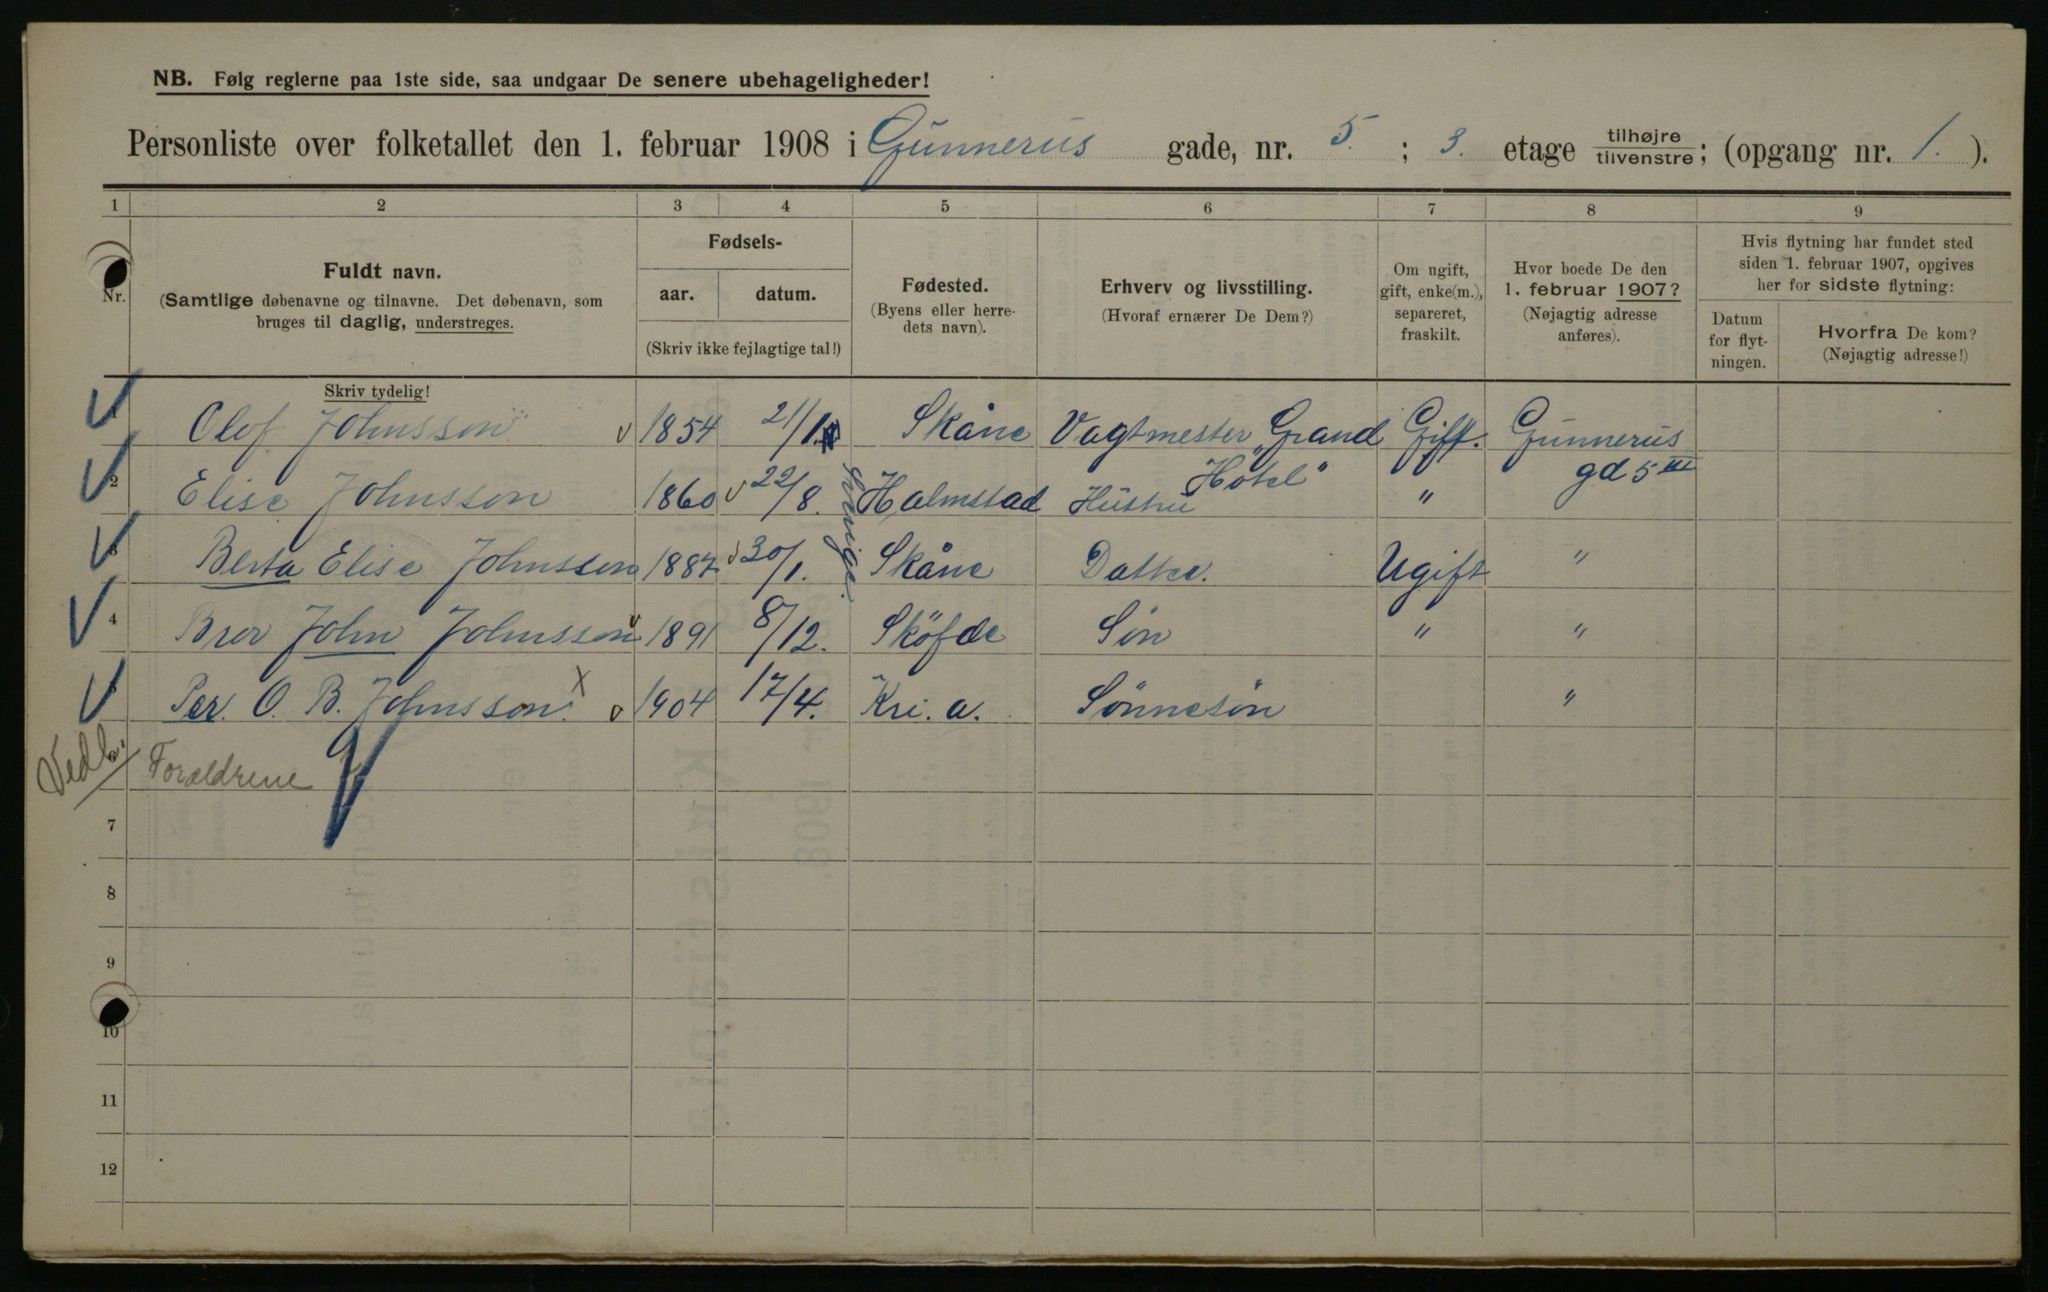 NB. Følg reglerne paa 1ste side, saa undgaar De senere ubehageligheder!
Personliste over folketallet den 1. februar 1908 i Gunnerus gade, nr. 5. ; 3. etage tilhøjre/tilvenstre; (opgang nr. 1. ).
1 2 3 4 5 6 7 8 9
Nr.
Fuldt navn.
(Samtlige døbenavne og tilnavne. Det døbenavn, som
bruges til daglig, understreges.
Skriv tydelig!
Fødsels-
aar. datum.
(Skriv ikke fejlagtige tal!)
Fødested.
(Byens eller herre-
dets navn).
Erhverv og livsstilling.
(Hvoraf ernærer De Dem?)
Om ugift,
gift, enke(m.),
separeret,
fraskilt.
Hvor boede De den
1. februar 1907?
(Nøjagtig adresse
anføres).
Hvis flytning har fundet sted
siden 1. februar 1907, opgives
her for sidste flytning:
Datum
for flyt-
ningen.
Hvorfra De kom?
(Nøjagtig adresse!)
1 Olof Johnsson 1854 21/1 Skåne Vagtmester "Grand Hotel" Gift. Gunnerus gd 5 III
2 Elise Johnsson 1860 22/8. Halmstad Hustru " 
Sverige.
3 Berta Elise Johnsson 1887 30/1. Skåne Datter. Ugift "
4 Bror John Johnsson 1891 8/12. Sköfde Sön " "
5 Per. O. B. Johnsson. X 1904 17/4. Kri. a. Sönnesön "
Vedl.
6 Forældrene
7
8
9
10
11
12